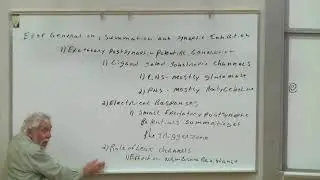 EPSP Generation, Summation and Synaptic Inhibition
1) Excitatory Postsynaptic Potential Generation
1) Ligand Gated Ionotropic Channels
1) CNS - Mostly Glutamate
2) PNS - Mostly Acetylcholine
2) Electrical Responses
1) Small Excitatory Postsynaptic
Potentials Summating at
the Trigger Zone
2) Role of Leak Channels
1) Effect on Membrane Resistance